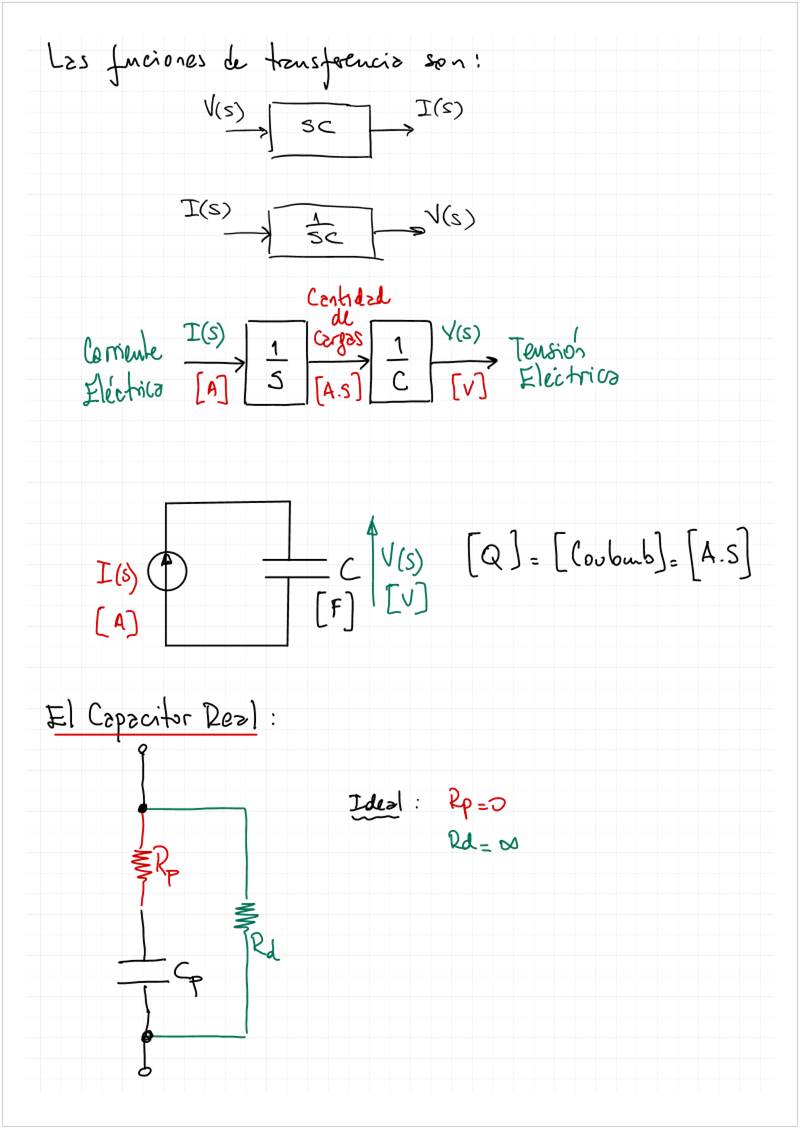 Las funciones de transferencia son:
V(s) SC I(s)
I(s) 1/SC V(s)
Corriente Eléctrica I(s) [A] 1/S Cantidad de Cargas [A.S] 1/C V(s) [V] Tensión Eléctrica
I(s) [A] C [F] V(s) [V]
[Q] = [Coulomb] = [A.S]
El Capacitor Real:
Ideal: Rp=0
Rd=∞
Rp
Rd
Cp